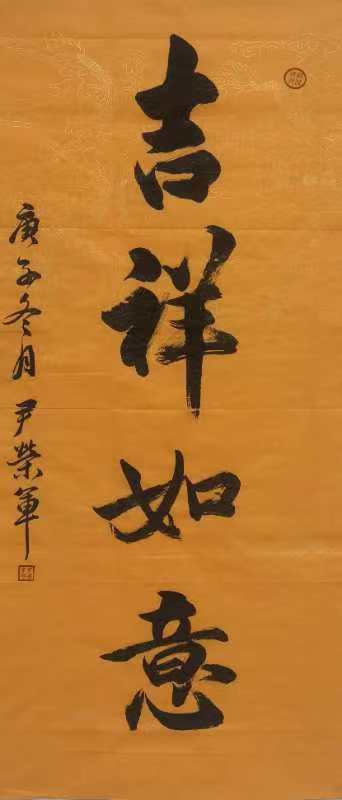 吉祥如意
庚子冬月 尹榮軍